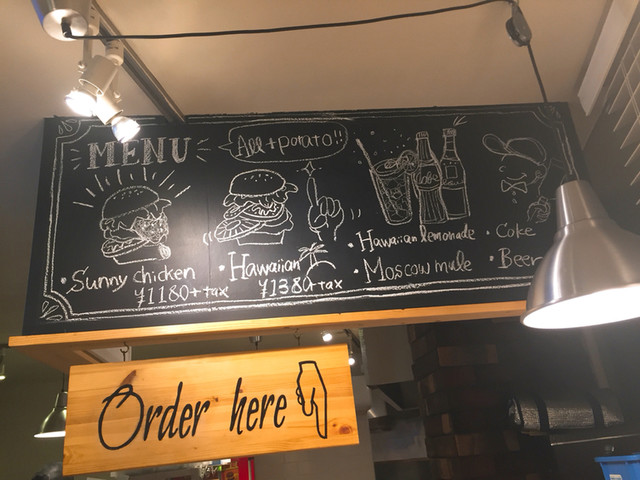 MENU
All + potato!!
• Sunny chicken
¥1180+tax
• Hawaiian
¥1380+tax
• Hawaiian lemonade
• Moscow mule
• Coke
• Beer
Order here